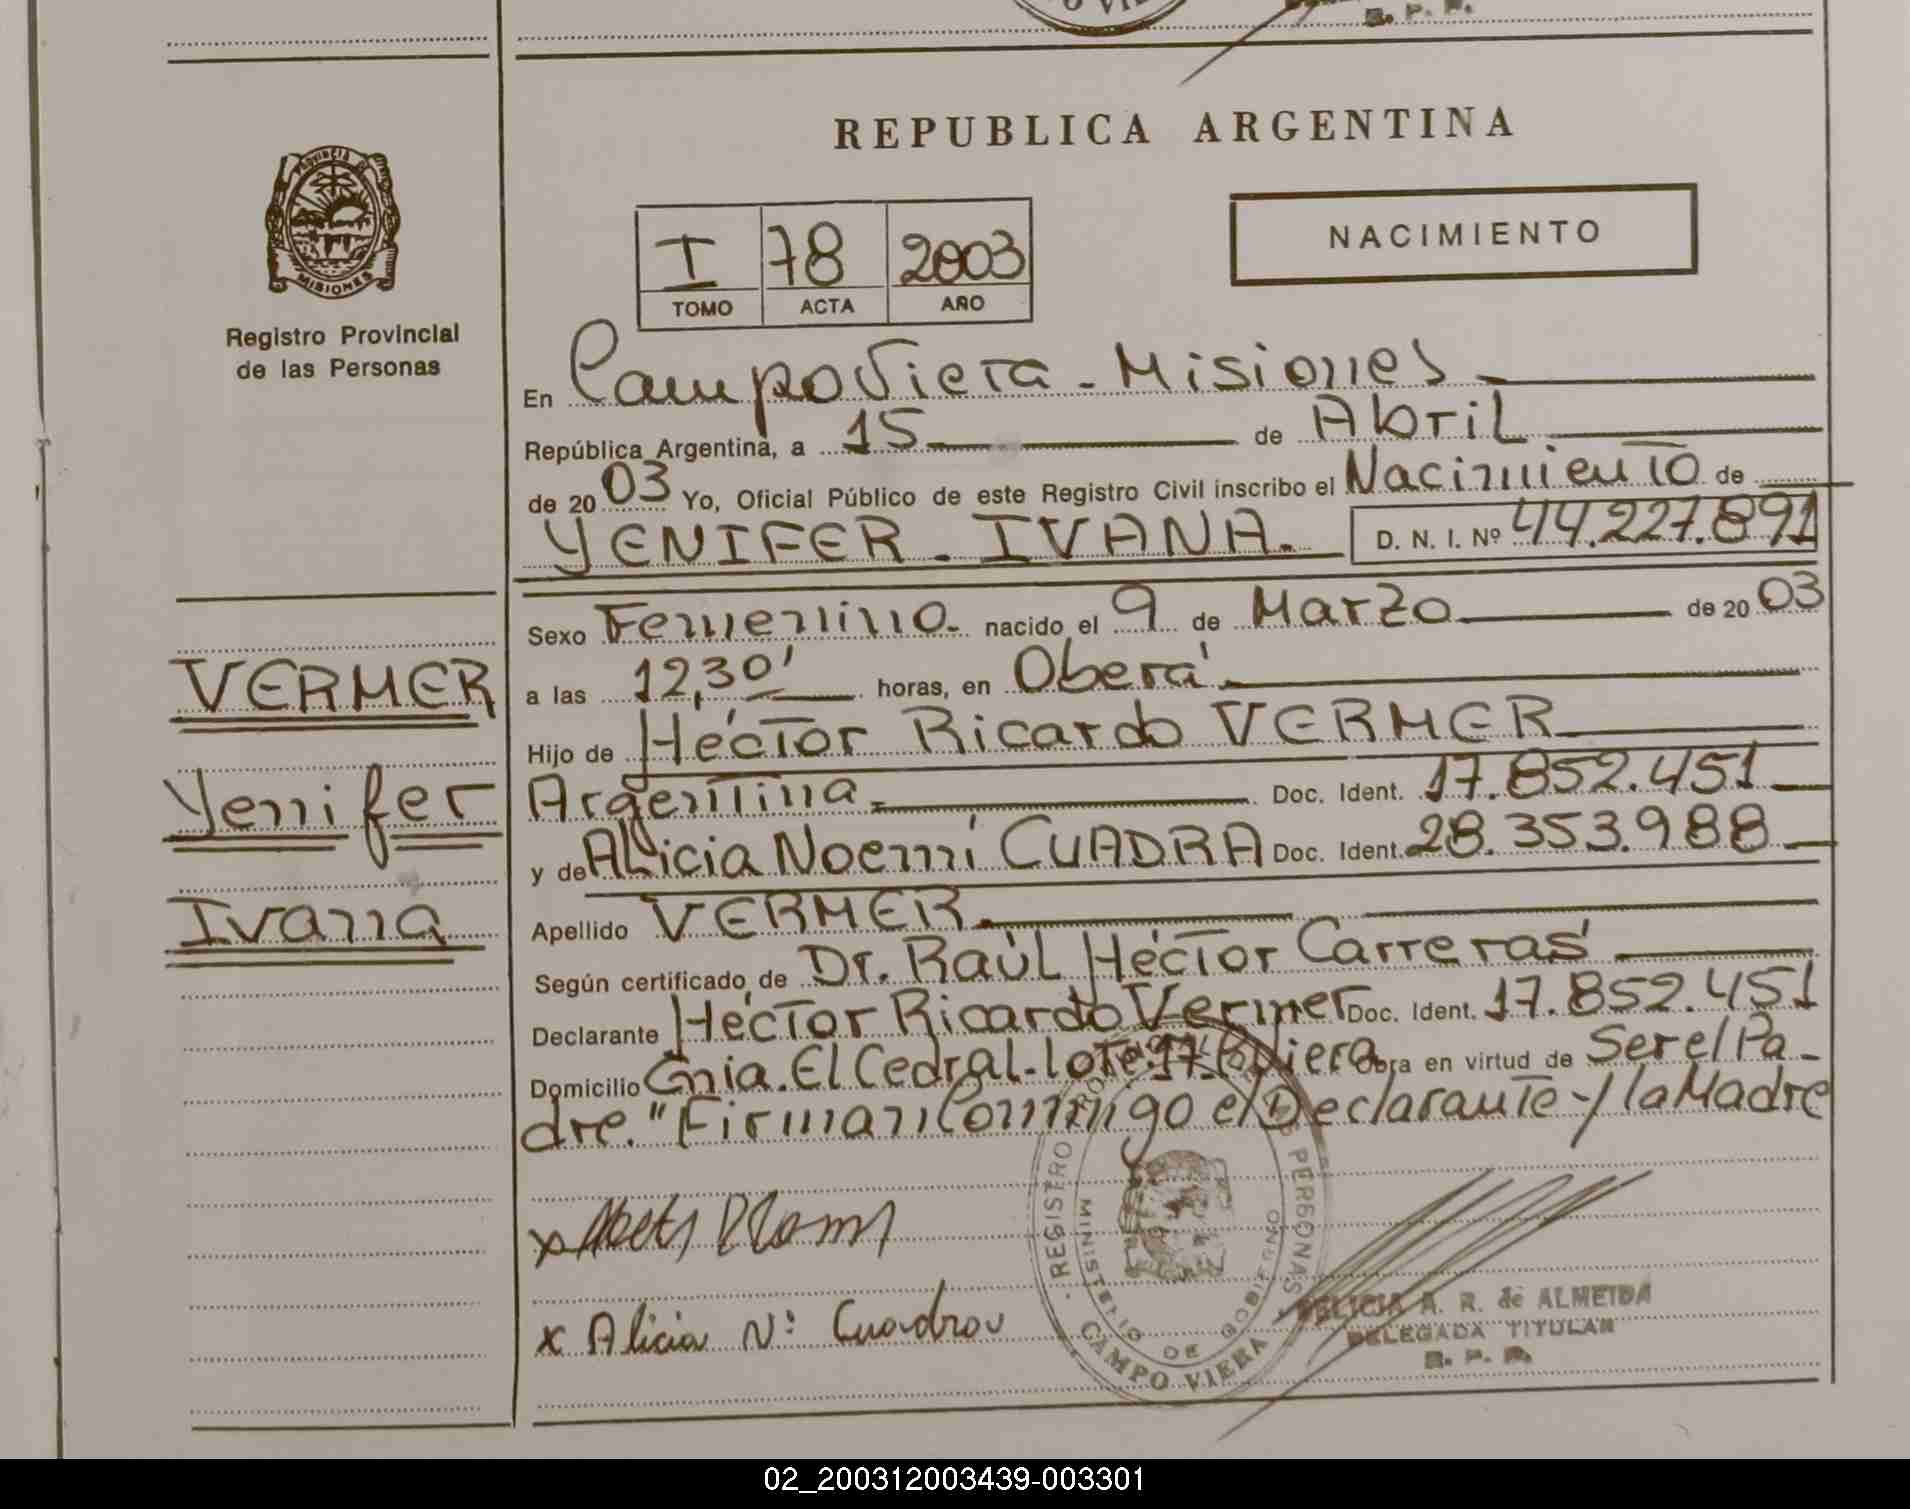 REPUBLICA ARGENTINA
PROVINCIA DE
MISIONES
Registro Provincial
de las Personas
I 78 2003
TOMO ACTA AÑO
NACIMIENTO
En Campo Viera - Misiones
República Argentina, a 15 de Abril
de 2003 Yo, Oficial Público de este Registro Civil inscribo el Nacimiento de
YENIFER - IVANA. D. N. I. Nº 44.227.891
Sexo Femenino - nacido el 9 de Marzo de 2003
VERMER
a las 12,30' horas, en Oberá
Hijo de Héctor Ricardo VERMER
Yenifer
Argentina Doc. Ident. 17.852.451
y de Alicia Noemí CUADRA Doc. Ident. 28.353.988
Ivana
Apellido VERMER
Según certificado de Dr. Raúl Héctor Carreras
Declarante Héctor Ricardo Vermer Doc. Ident. 17.852.451
Domicilio Cnia. El Cedral - Lote. 17 Viera Obra en virtud de Ser el Pa-
dre." Firman Conmigo el Declarante y la Madre
REGISTRO PERSONAS
MINISTERIO DE GOBIERNO
CAMPO VIERA
x Alicia N: Cuadra
A. R. de ALMEIDA
DELEGADA TITULAR
R. P. P.
02_200312003439-003301